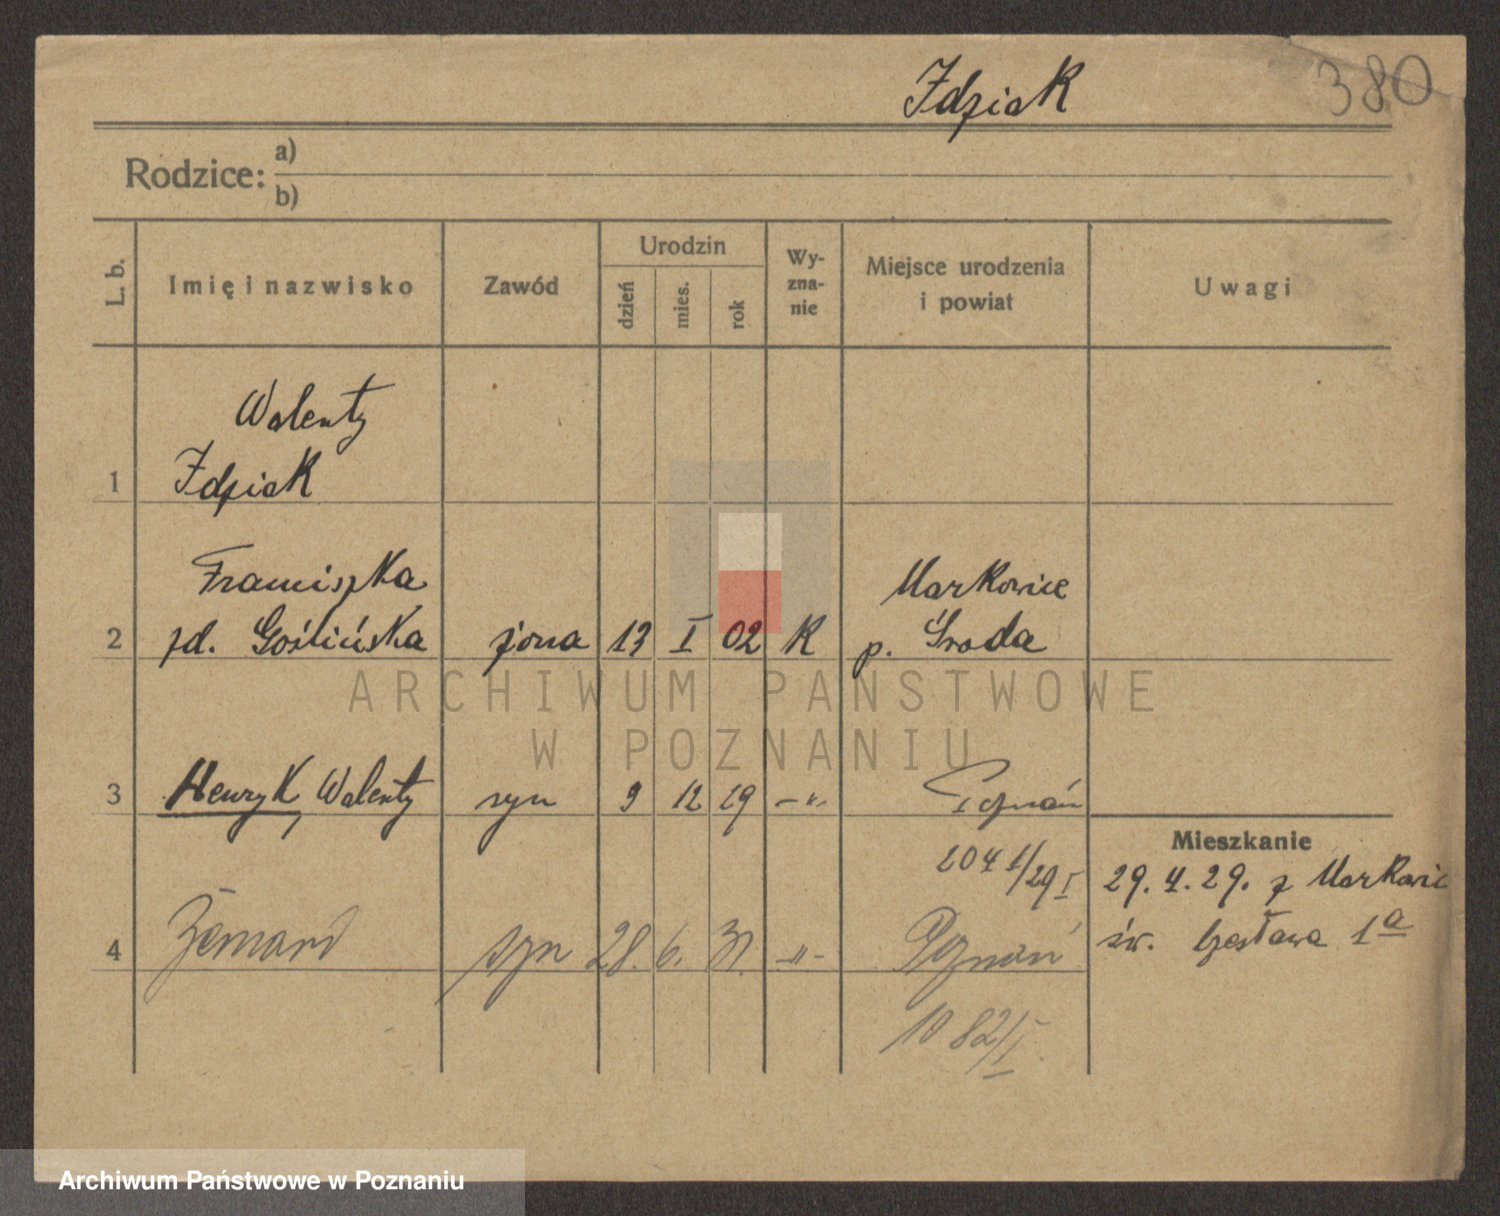 Idziak
380
Rodzice:
a)
b)
L. b.
Imię i nazwisko
Zawód
Urodzin
dzień
mies.
rok
Wy-
zna-
nie
Miejsce urodzenia
i powiat
Uwagi
Walenty
1 Idziak
Franciszka Markowice
2 zd. Goślińska żona 13 I 02 K p. Środa
ARCHIWUM PAŃSTWOWE
W POZNANIU
3 Henryk, Walenty syn 9 12 29 -"- Poznań
Mieszkanie
204 1/29 I
29. 4. 29. z Markowic
św. Czesława 1a
4 syn 28. 6. 31. -"- Poznań
1082/I.
Archiwum Państwowe w Poznaniu